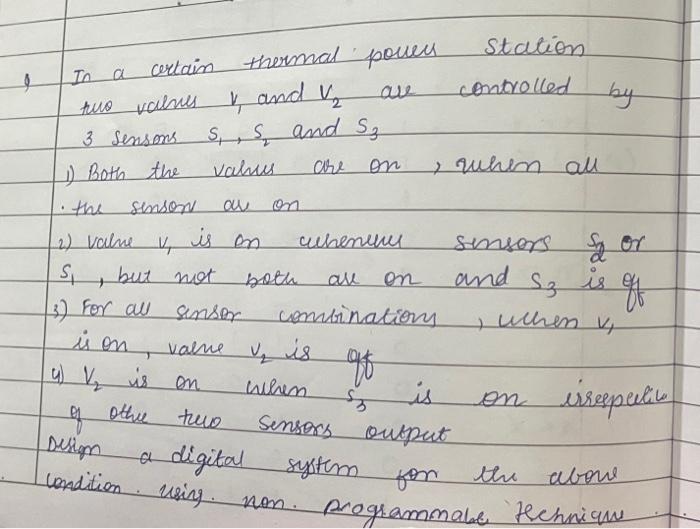 In a certain thermal power station
two valves V1 and V2 are controlled by
3 sensors S1, S2 and S3
1) Both the valves are on, when all
the sensors are on
2) valve V1 is on whenever sensors S2 or
S1, but not both are on and S3 is off
3) For all sensor combinations, when V1
is on, valve V2 is off
4) V2 is on when S3 is on irrespective
of other two sensors output
Design a digital system for the above
condition. using. non. programmable technique.